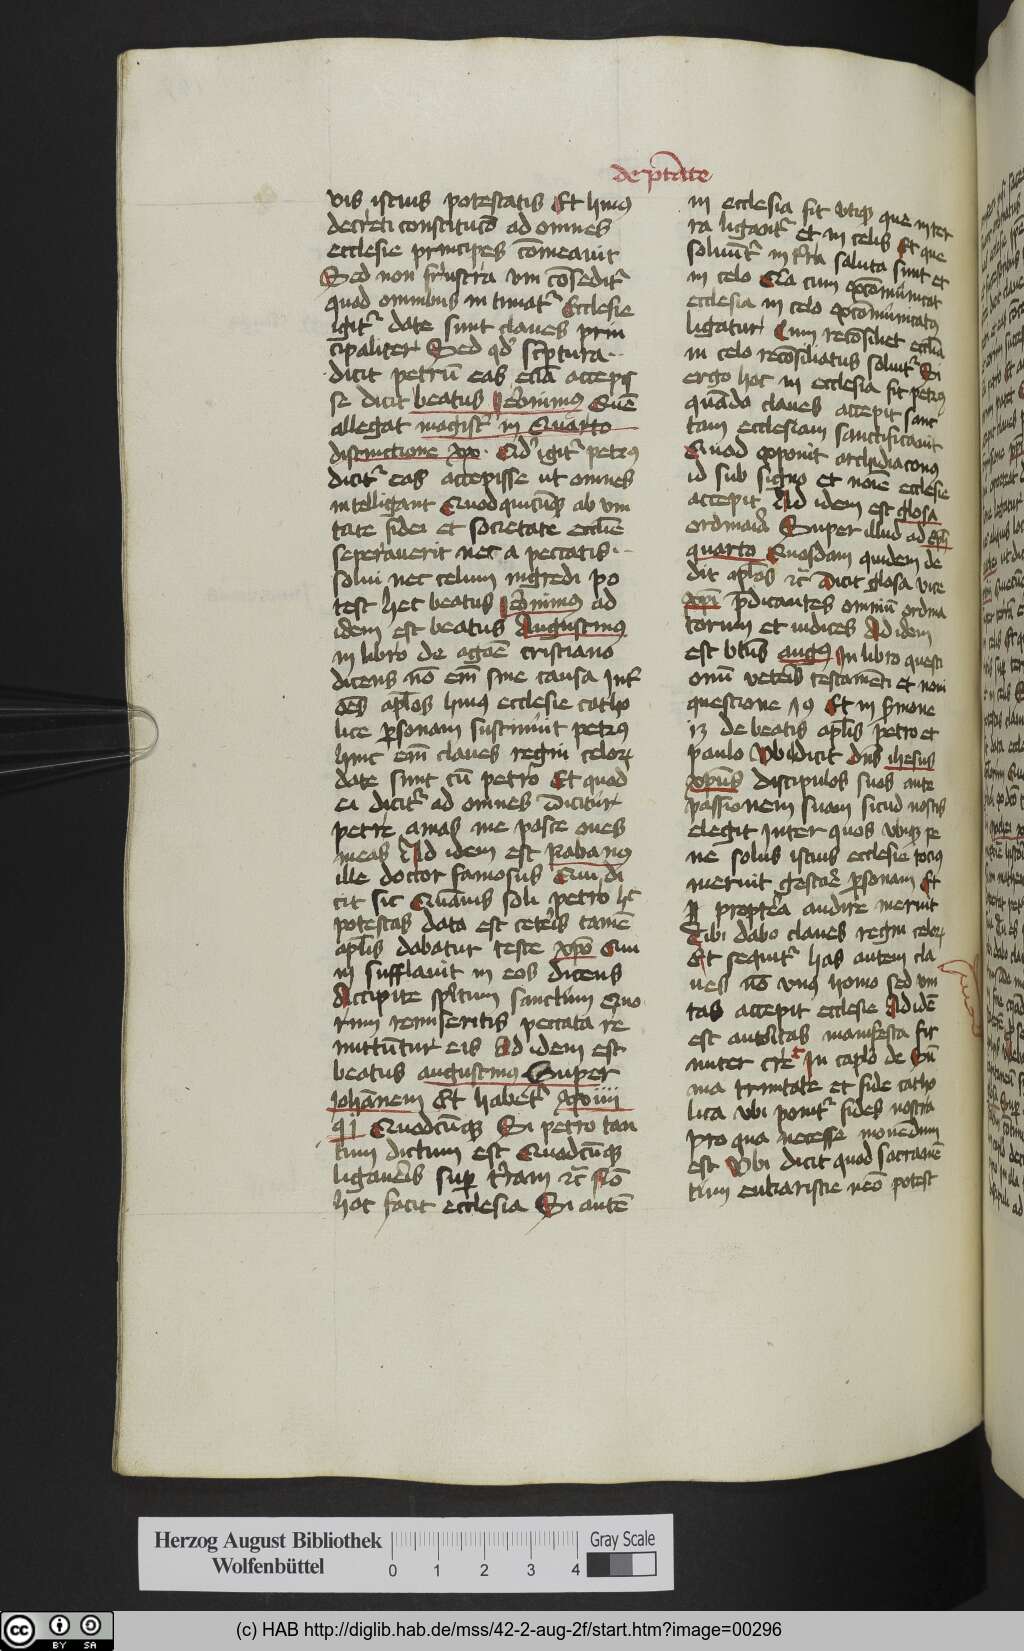 de ptāte
vis istius potestatis Et huius
decreti constitucō ad omnes
ecclesie principes cōmeauit
Sed non frustra vni cōseditr
quod omnibus intimatr Ecclesie
igitr date sunt claues prin
cipaliter Sed qd scriptura
dicit petrū eas eciā accepis
se dicit beatus Ieronimus Quē
allegat magistr in Quarto
distinctione xix Id igitr petrus
dicitr eas accepisse ut omnes
intelligant Quod quicūqz ab vni
tate fidei et societate ecclie
seperauerit nec a peccatis
solui nec celum ingredi po
test hec beatus Ieronimus ad
idem est beatus Augustinus
in libro de agoē cristiano
dicens nō em sine causa int
oēs aplos huius ecclesie catho
lice personam sustinuit petrus
huic em claues regni celorum
date sunt cū petro Et quod
ei dicitr ad omnes dicitur
petre amas me pasce oues
meas Ad idem est rabanus
ille doctor famosus Qui di
cit sic Quāuis soli petro hec
potestas data est ceteris tamē
aplis dabatur teste xpo Qui
in sufflauit in eos dicens
Accipite spiritum sanctum Quo
rum remiseritis peccata re
mittūtur eis Ad idem est
beatus augustinus Super
Iohānem Et habetr
Quodcūqz Si petro tan
tum dictum est Quodcūqz
ligaueris super terram etc Nō
hoc facit ecclesia Si autē
in ecclesia fit vtiqz que in ter
ra ligantr et in celis Et que
soluūtr in terra saluta sunt et
in celo Cla cum excōmunicat
ecclesia in celo excōmunicatus
ligatur Cum recōsiliet ecclia
in celo recōsiliatus soluitr Si
ergo hoc in ecclesia fit petrus
quāda claues accepit sanc
tam ecclesiam sanctificauit
Quod exponit archidiaconus
id sub signo et noīe ecclesie
accepit Ad idem est glosa
ordinaria Super illud ad eph
quarto Quosdam quidem de
dit aplos etc dicit glosa vice
xpi p̄dicantes omniū ordina
torum et iudices Ad idem
est btus augus In libro questi
onū veteris testamēti et noui
questione Et in sermone
de beatis aplis petro et
paulo Vbi dicit dn̄s ihesus
xpūs discipulos suos ante
passionem suam sicud nostis
elegit Inter quos vbiqz pe
ne solus istius ecclesie tocius
meruit gestare personam Et
propterea audire meruit
Tibi dabo claues regni celorum
Et sequitr has autem cla
ues nō vnus homo sed vni
tas accepit ecclesie Ad idē
est autoritas manifesta fir
miter cre In caplo de sūm
ma trinitate et fide catho
lica vbi ponitr fides nostra
pro qua necesse mouendum
est Vbi dicit quod sacramē
tum eukaristie nēo potest
Herzog August Bibliothek
Wolfenbüttel
0 1 2 3 4
Gray Scale
cc BY SA
(c) HAB http://diglib.hab.de/mss/42-2-aug-2f/start.htm?image=00296